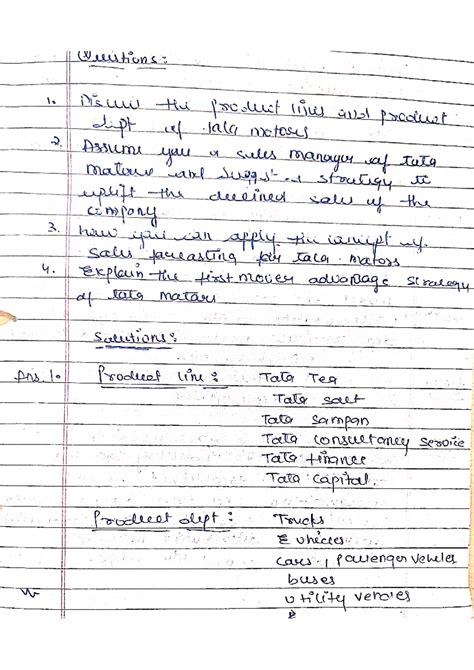 Questions:
1. Discuss the product lines and product
dipt of tata motors
2. Assume you a sales manager of tata
motars and suggest a strategy to
uplift the declined sales of the
company
3. how you can apply the concept of
sales forecasting for tata motors
4. Explain the first mover advantage strategy
of tata motars
Solutions:
Ans 1. Product line: Tata Tea
Tata salt
Tata Sampan
Tata Consultancy Service
Tata finance
Tata Capital.
Product dept: Trucks
E vhicles
cars, passenger vehicles
buses
utility